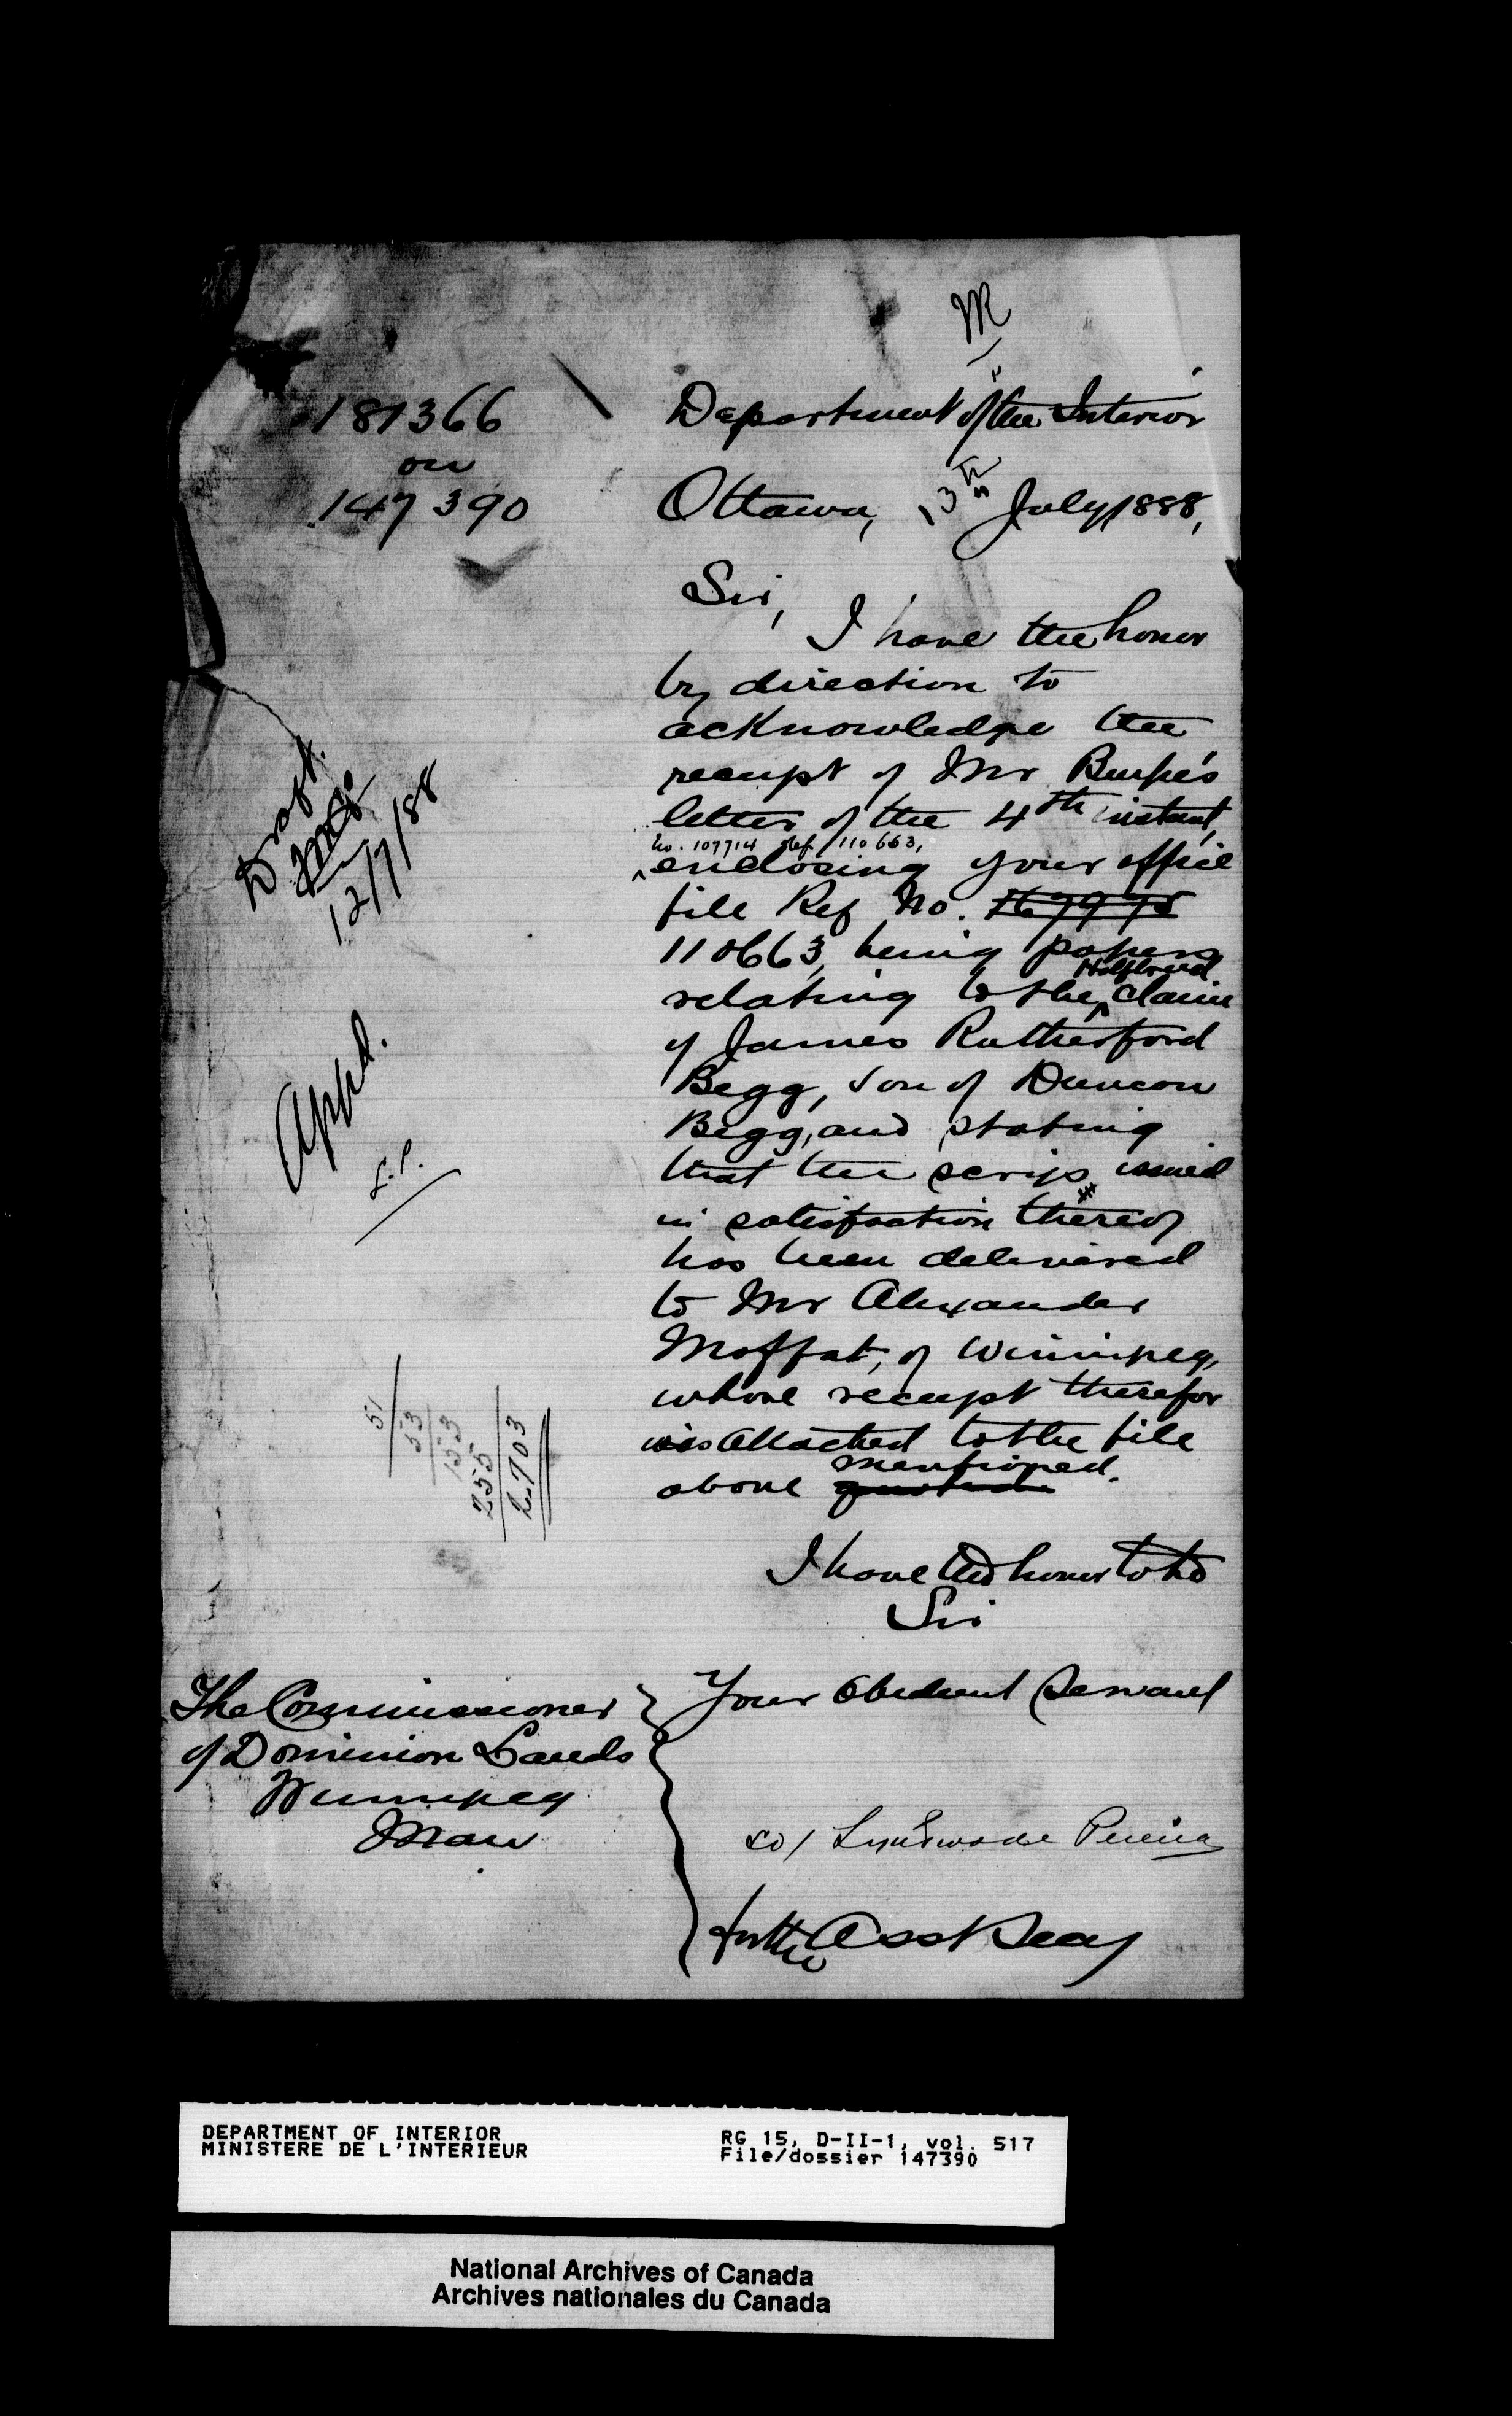 M
181366
on
147390
Department of the Interior
Ottawa, 13th July, 1888,
Sir,
I have the honor
by direction to
acknowledge the
receipt of Mr Burpe's
letter of the 4th instant,
No. 107714 Ref. 110663,
enclosing your office
file Ref No.
110663, being papers
relating to the Halfbreed claim
of James Rutherford
Begg, son of Duncan
Begg, and stating
that the scrip issued
in satisfaction thereof
has been delivered
to Mr Alexander
Moffat, of Winnipeg,
whose receipt therefor
was attached to the file
above quoted mentioned.
I have the honor to be
Sir
Your Obedient Servant
Draft.
12/7/88
Appd.
L.P.
51
53
153
255
2703
The Commissioner
of Dominion Lands
Winnipeg
Man
sd/ Lyndwode Pereira
for the Asst Secy
DEPARTMENT OF INTERIOR
MINISTERE DE L'INTERIEUR
RG 15, D-II-1, vol. 517
File/dossier 147390
National Archives of Canada
Archives nationales du Canada